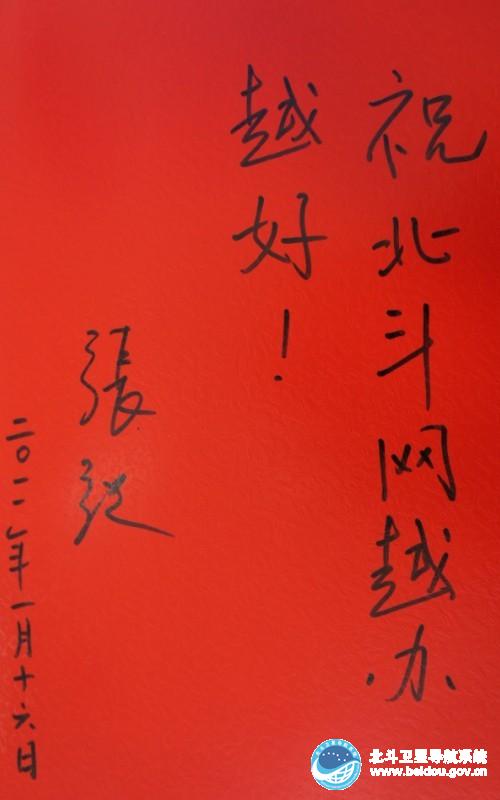 祝北斗网越办
越好！
張
二〇一二年一月十六日
北斗卫星导航系统
www.beidou.gov.cn